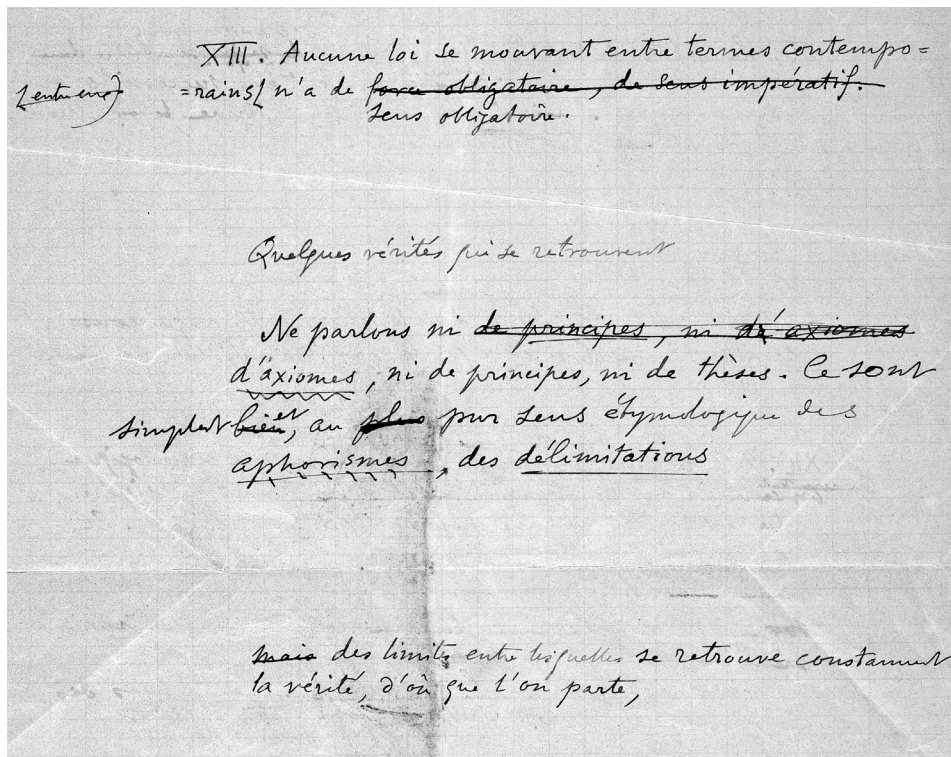 XIII. Aucune loi se mouvant entre termes contempo=
=rains[ n'a de force obligatoire, de sens impératif.
[entre eux]
sens obligatoire.
Quelques vérités qui se retrouvent
Ne parlons ni de principes, ni d'axiomes
d'axiomes, ni de principes, ni de thèses. Ce sont
simplent bien et, au plus pur sens étymologique des
aphorismes, des délimitations
mais des limites entre lesquelles se retrouve constamment
la vérité, d'où que l'on parte,